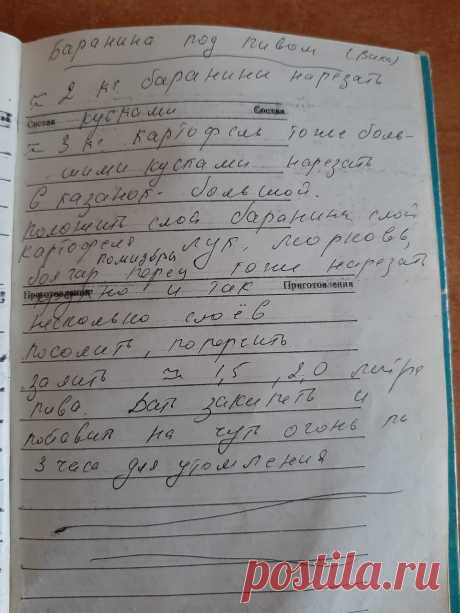 Баранина под пивом (Вика)
≈ 2 кг баранины нарезать
Состав кусками Состав
≈ 3 кг картофель тоже боль-
шими кусками нарезать
В казанок большой.
положить слой баранины, слой
картофеля лук, морковь,
помидоры
болгар перец тоже нарезать
Приготовления но и так Приготовления
несколько слоёв
посолить, поперчить
залить ≈ 1,5, 2,0 литра
пива. Дать закипеть и
на чуть огонь на
3 часа для утомления